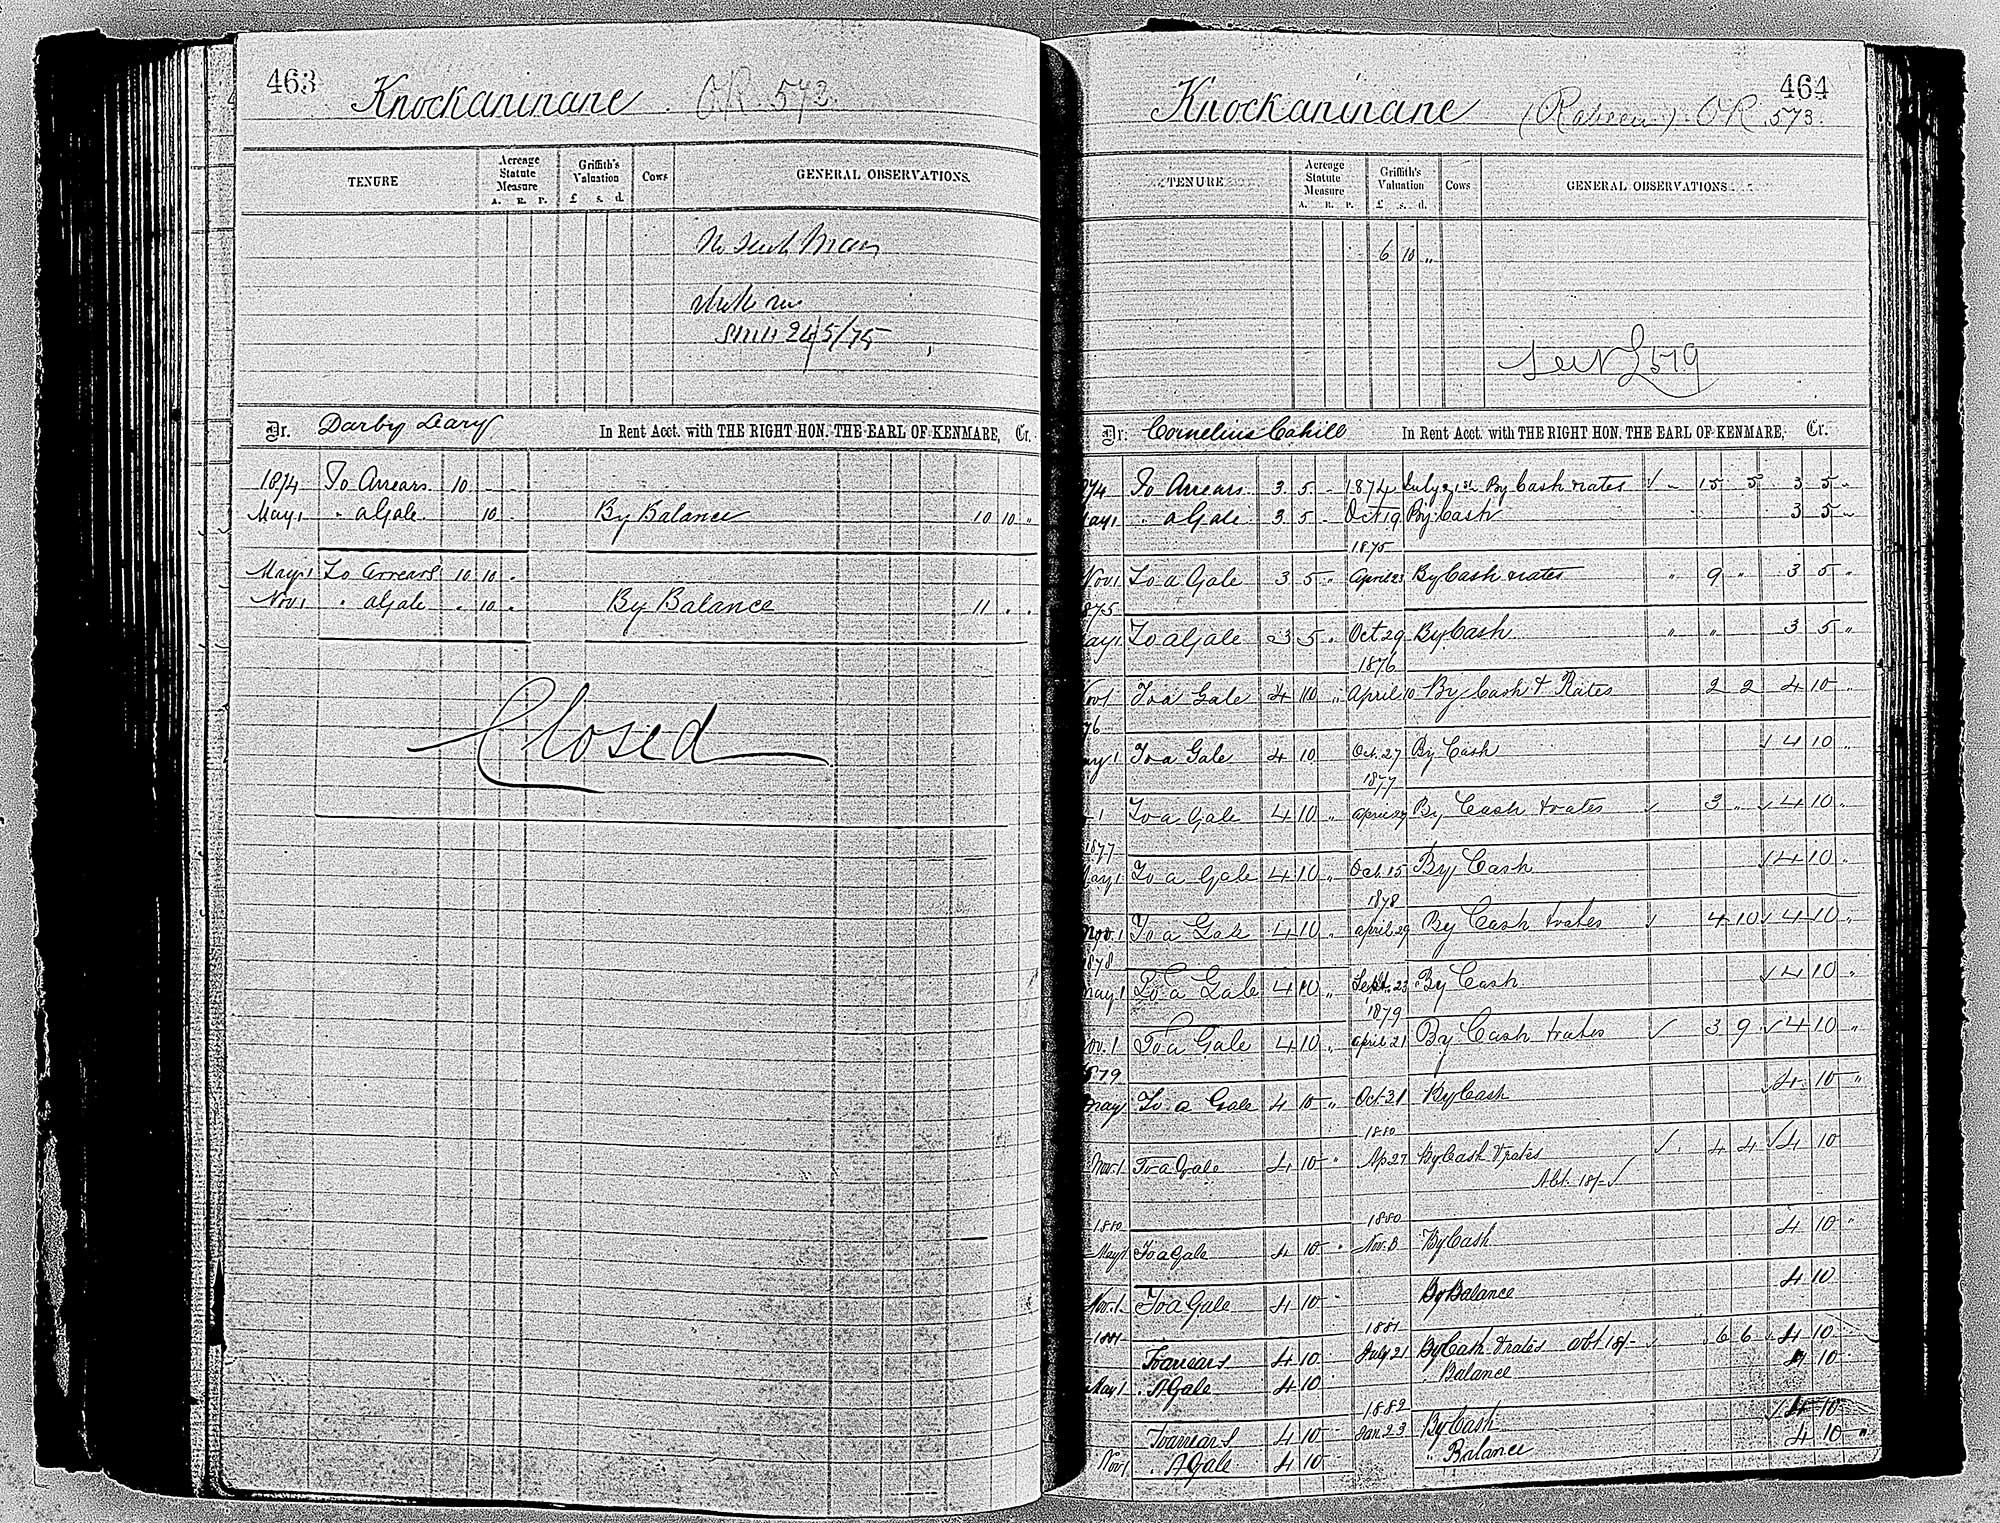 463
Knockaninane O.R. 572.
TENURE
Acreage Statute Measure
A. R. P.
Griffith's Valuation
£ s. d.
Cows
GENERAL OBSERVATIONS.
No such Man
24/5/75
Dr. Darby Leary In Rent Acct. with THE RIGHT HON. THE EARL OF KENMARE, Cr.
1874 To Arrears 10 - -
May 1 " a Gale 10 - By Balance 10 10 "
May 1 To arrears 10 10 -
Nov 1 " a Gale " 10 " By Balance 11 " "
Closed
464
Knockaninane (Raheen) O.R. 573.
TENURE
Acreage Statute Measure
A. R. P.
Griffith's Valuation
£ s. d.
Cows
GENERAL OBSERVATIONS
6 10 "
519
Dr. Cornelius Cahill In Rent Acct. with THE RIGHT HON. THE EARL OF KENMARE, Cr.
74 To Arrears 3 5 - 1874 July 21st By Cash rates ✓ - 15 5 3 5 "
May 1 " a Gale 3 5 - Oct 19 By Cash 3 5 "
1875
Nov 1 To a Gale 3 5 " April 23 By Cash rates " 9 " 3 5 "
875
May 1 To a Gale 3 5 " Oct. 29 By Cash " " 3 5 "
1876
Nov 1 To a Gale 4 10 " April 10 By Cash & Rates 2 2 4 10 "
76
May 1 To a Gale 4 10 Oct. 27 By Cash ✓ 4 10 "
1877
1 To a Gale 4 10 " April 27 By Cash & rates ✓ 3 " ✓ 4 10 "
1877
May 1 To a Gale 4 10 " Oct. 15 By Cash ✓ 4 10 "
1878
Nov. 1 To a Gale 4 10 " April 29 By Cash & rates ✓ 4 10 ✓ 4 10 "
878
May 1 To a Gale 4 10 " Sept. 23 By Cash ✓ 4 10 "
1879
Nov. 1 To a Gale 4 10 " April 21 By Cash & rates ✓ 3 9 ✓ 4 10 "
879
May To a Gale 4 10 " Oct. 21 By Cash ✓ 4 10 "
1880
Nov. 1 To a Gale 4 10 " Ap 27 By Cash & rates ✓ 4 4 ✓ 4 10
Abt. 18/- ✓
1880 1880
May 1 To a Gale 4 10 " Nov. 8 By Cash 4 10 "
Nov. 1 To a Gale 4 10 By Balance 4 10
1881 1881
To arrears 4 10 July 21 By Cash & rates abt 18/- ✓ 6 6 4 10
May 1 " A Gale 4 10 " Balance 4 10
1882
To arrears 4 10 Jan. 23 By Cash ✓ 4 10
Nov 1 " A Gale 4 10 " Balance 4 10 "